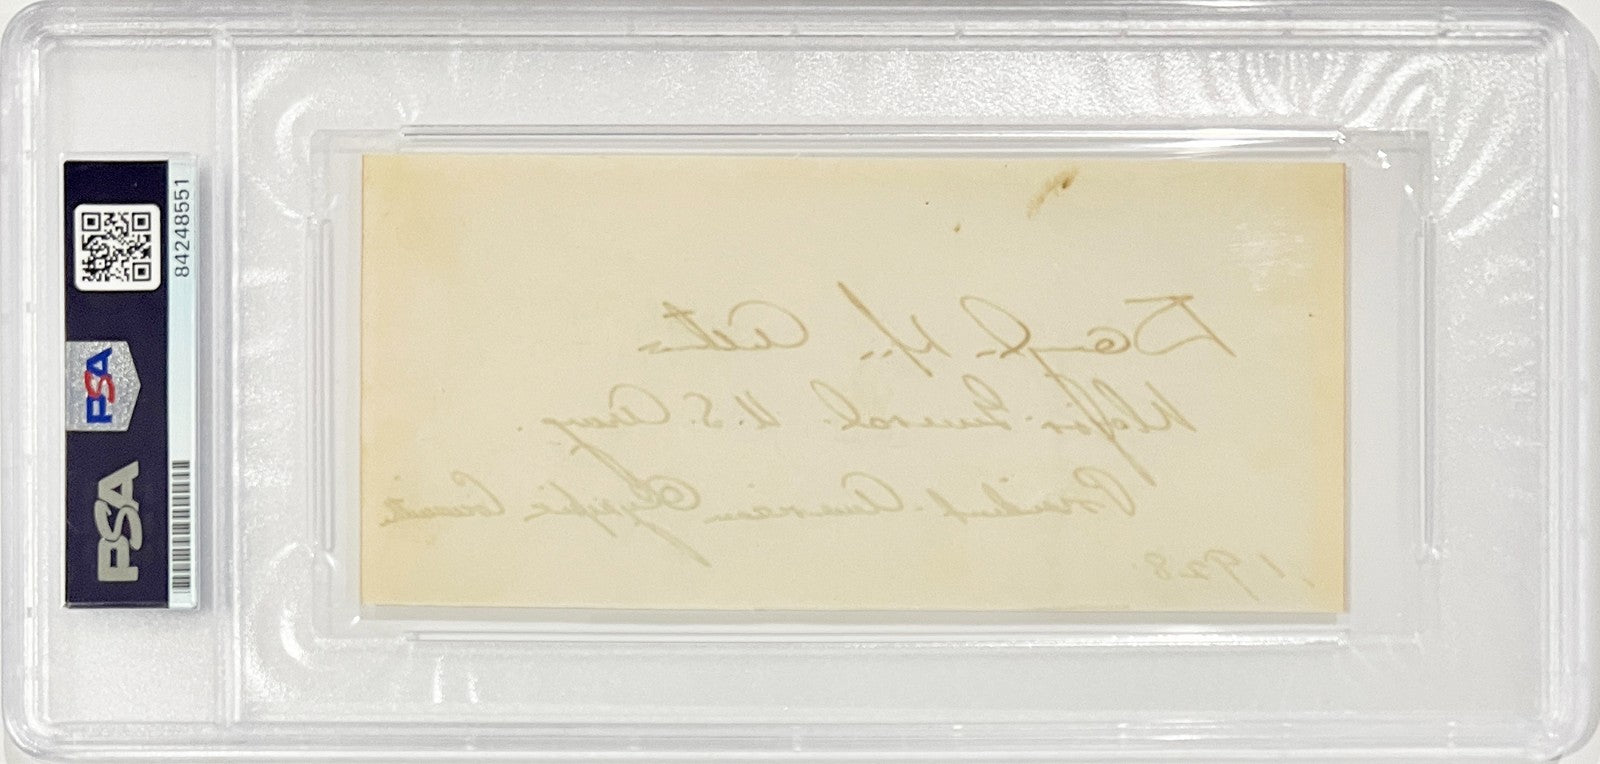 84248551
PSA
PSA
Douglas MacArthur
Major General. U.S. Army.
President American Olympic Committee
1928.